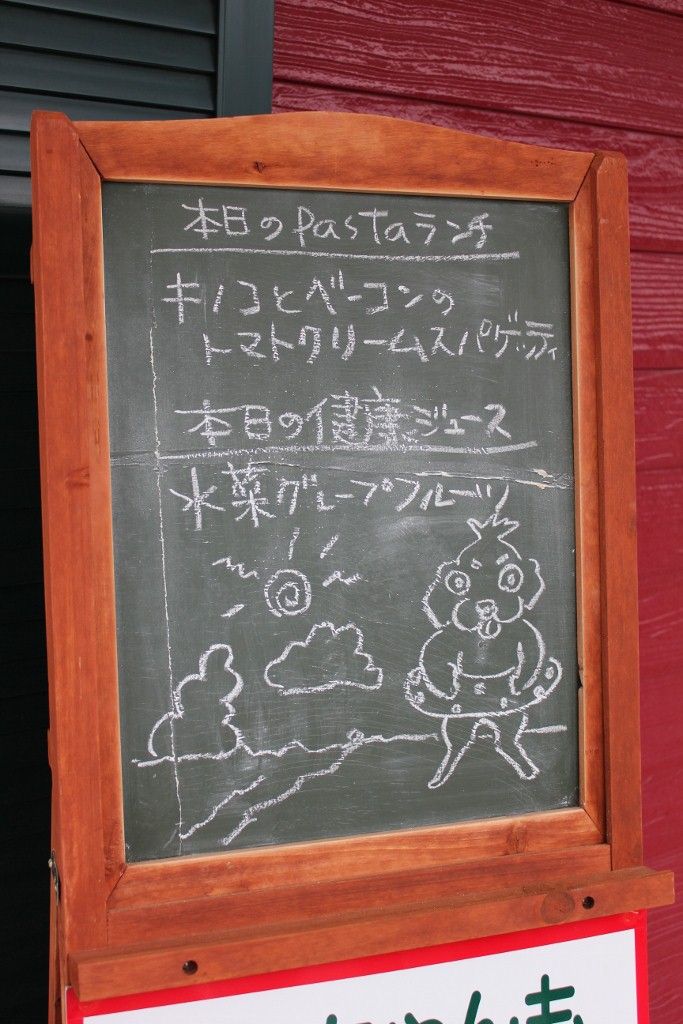 本日のpastaランチ
キノコとベーコンの
トマトクリームスパゲッティ
本日の健康ジュース
水菜グレープフルーツ